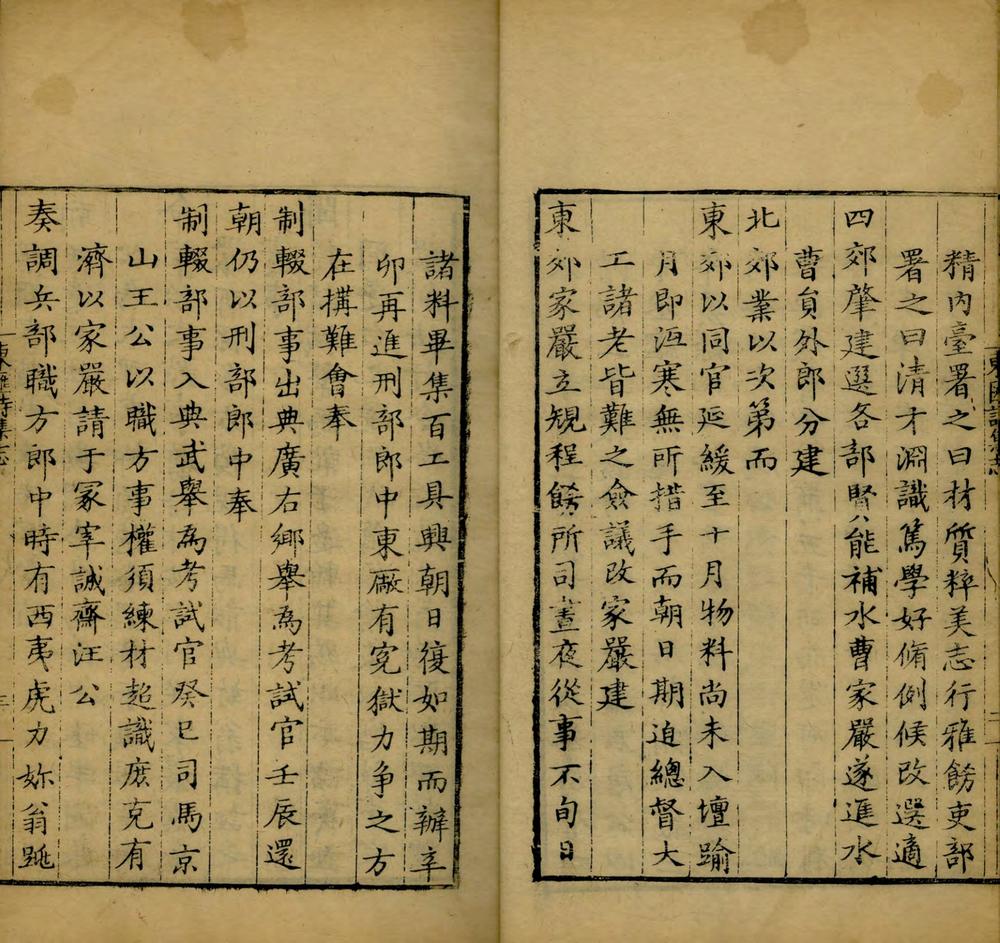 精內臺署之曰材質粹美志行雅飭吏部
署之曰清才淵識篤學好脩例候改選適
四郊肇建選各部賢能補水曹家嚴遂進水
曹員外郎分建
北郊業以次第而
東郊以同官延緩至十月物料尚未入壇踰
月即沍寒無所措手而朝日期迫總督大
工諸老皆難之僉議改家嚴建
東郊家嚴立規程飭所司晝夜從事不旬日
諸料畢集百工具興朝日復如期而辦辛
卯再進刑部郎中東廠有冤獄力争之方
在搆難會奉
制輟部事出典廣右鄉舉為考試官壬辰還
朝仍以刑部郎中奉
制輟部事入典武舉為考試官癸巳司馬京
山王公以職方事權須練材超識庶克有
濟以家嚴請于冢宰誠齋汪公
奏調兵部職方郎中時有西夷虎力妳翁跳